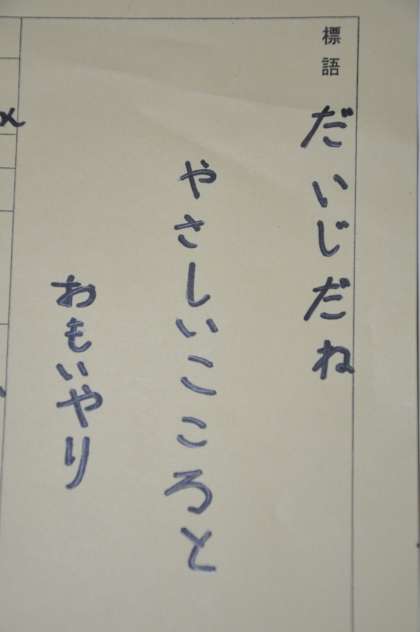 標語
だいじだね
やさしいこころと
おもいやり